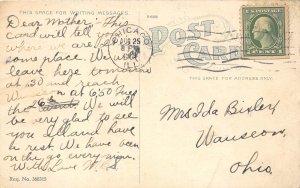 THIS SPACE FOR WRITING MESSAGES.
POST CARD
THIS SPACE FOR ADDRESS ONLY.
CHICAGO
AUG 25
Dear Mother:- This
card will tell you
where we are
some place. We will
leave here tomorrow
at 30 and reach
at 650 Tues
the 26 We will
be very glad to see
you All and have
a rest. We have been
on the go every
With Love
Mrs Ida Bixler
Wauseon,
Ohio,
Reg. No.